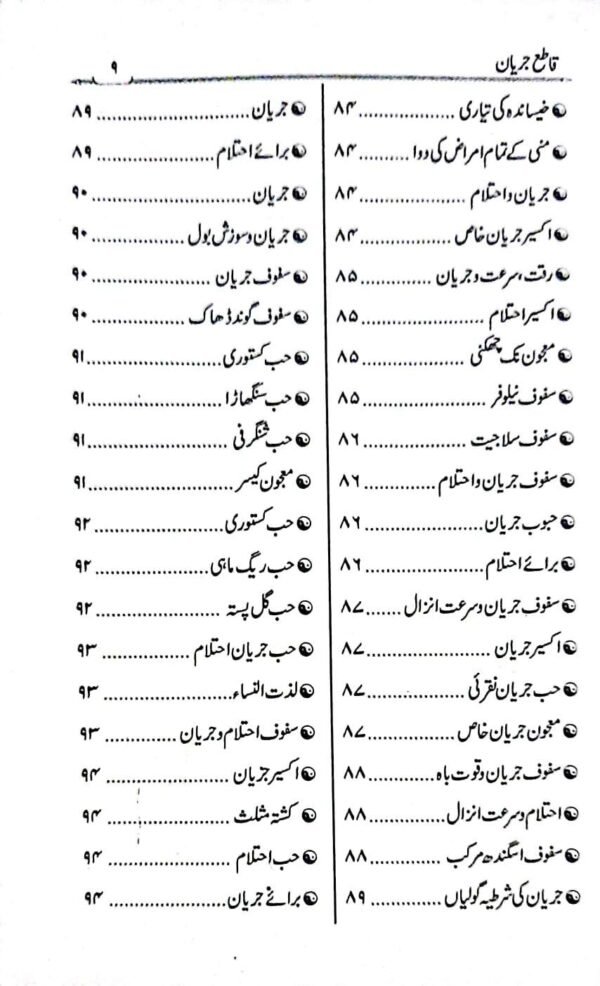 قاطع جریان ۹
خیساندہ کی تیاری .................. ۸۴
منی کے تمام امراض کی دوا .......... ۸۴
جریان و احتلام .................... ۸۴
اکسیر جریان خاص .................. ۸۴
رقت، سرعت و جریان ............. ۸۵
اکسیر احتلام ...................... ۸۵
معجون نک چھکنی .................. ۸۵
سفوف نیلوفر ...................... ۸۵
سفوف سلاجیت .................. ۸۶
سفوف جریان و احتلام ............. ۸۶
حبوب جریان ..................... ۸۶
برائے احتلام ..................... ۸۶
سفوف جریان و سرعت انزال ....... ۸۷
اکسیر جریان ..................... ۸۷
حب جریان نقرئی .................. ۸۷
معجون جریان خاص ................ ۸۷
سفوف جریان و قوت باہ ............ ۸۸
احتلام و سرعت انزال .............. ۸۸
سفوف اسگندھ مرکب ............. ۸۸
جریان کی شرطیہ گولیاں ............. ۸۹
جریان ............................ ۸۹
برائے احتلام ..................... ۸۹
جریان ............................ ۹۰
جریان و سوزش بول ................ ۹۰
سفوف جریان ..................... ۹۰
سفوف گوند ڈھاک ................. ۹۰
حب کستوری ..................... ۹۱
حب سنگھاڑا ..................... ۹۱
حب شنگرفی ..................... ۹۱
معجون کیسر ..................... ۹۱
حب کستوری ..................... ۹۲
حب ریگ ماہی .................. ۹۲
حب گل پستہ .................... ۹۲
حب جریان احتلام ................ ۹۳
لذت النساء ...................... ۹۳
سفوف احتلام و جریان ............ ۹۳
اکسیر جریان ..................... ۹۴
کشتہ مثلث ..................... ۹۴
حب احتلام ..................... ۹۴
برائے جریان ..................... ۹۴